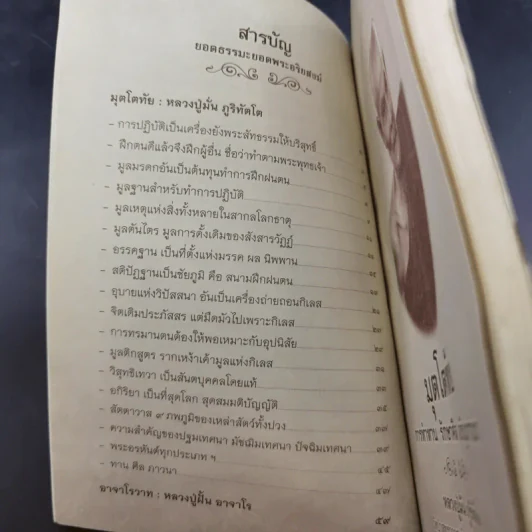 สารบัญ
ยอดธรรมะยอดพระอริยสงฆ์
มุตโตทัย : หลวงปู่มั่น ภูริทัตโต
- การปฏิบัติเป็นเครื่องยังพระสัทธรรมให้บริสุทธิ์
- ฝึกตนดีแล้วจึงฝึกผู้อื่น ชื่อว่าทำตามพระพุทธเจ้า
- มูลมรดกอันเป็นต้นทุนทำการฝึกฝนตน
- มูลฐานสำหรับทำการปฏิบัติ
- มูลเหตุแห่งสิ่งทั้งหลายในสากลโลกธาตุ
- มูลตันไตร มูลการตั้งเดิมของสังสารวัฏฏ์
- อรรคฐาน เป็นที่ตั้งแห่งมรรค ผล นิพพาน
- สติปัฏฐานเป็นชัยภูมิ คือ สนามฝึกฝนตน
- อุบายแห่งวิปัสสนา อันเป็นเครื่องถ่ายถอนกิเลส
- จิตเดิมประภัสสร แต่มืดมัวไปเพราะกิเลส ๒๗
- การทรมานตนต้องให้พอเหมาะกับอุปนิสัย ๒๙
- มูลติกสูตร รากเหง้าเค้ามูลแห่งกิเลส ๓๑
- วิสุทธิเทวา เป็นสันตบุคคลโดยแท้
- อกิริยา เป็นที่สุดโลก สุดสมมติบัญญัติ ๓๕
- สัตตาวาส ๙ ภพภูมิของเหล่าสัตว์ทั้งปวง ๓๗
- ความสำคัญของปฐมเทศนา มัชฌิมเทศนา ปัจฉิมเทศนา ๓๙
- พระอรหันต์ทุกประเภท ฯ ๔๕
- ทาน ศีล ภาวนา ๔๗
อาจาโรวาท : หลวงปู่มั่น อาจาโร ๕๙